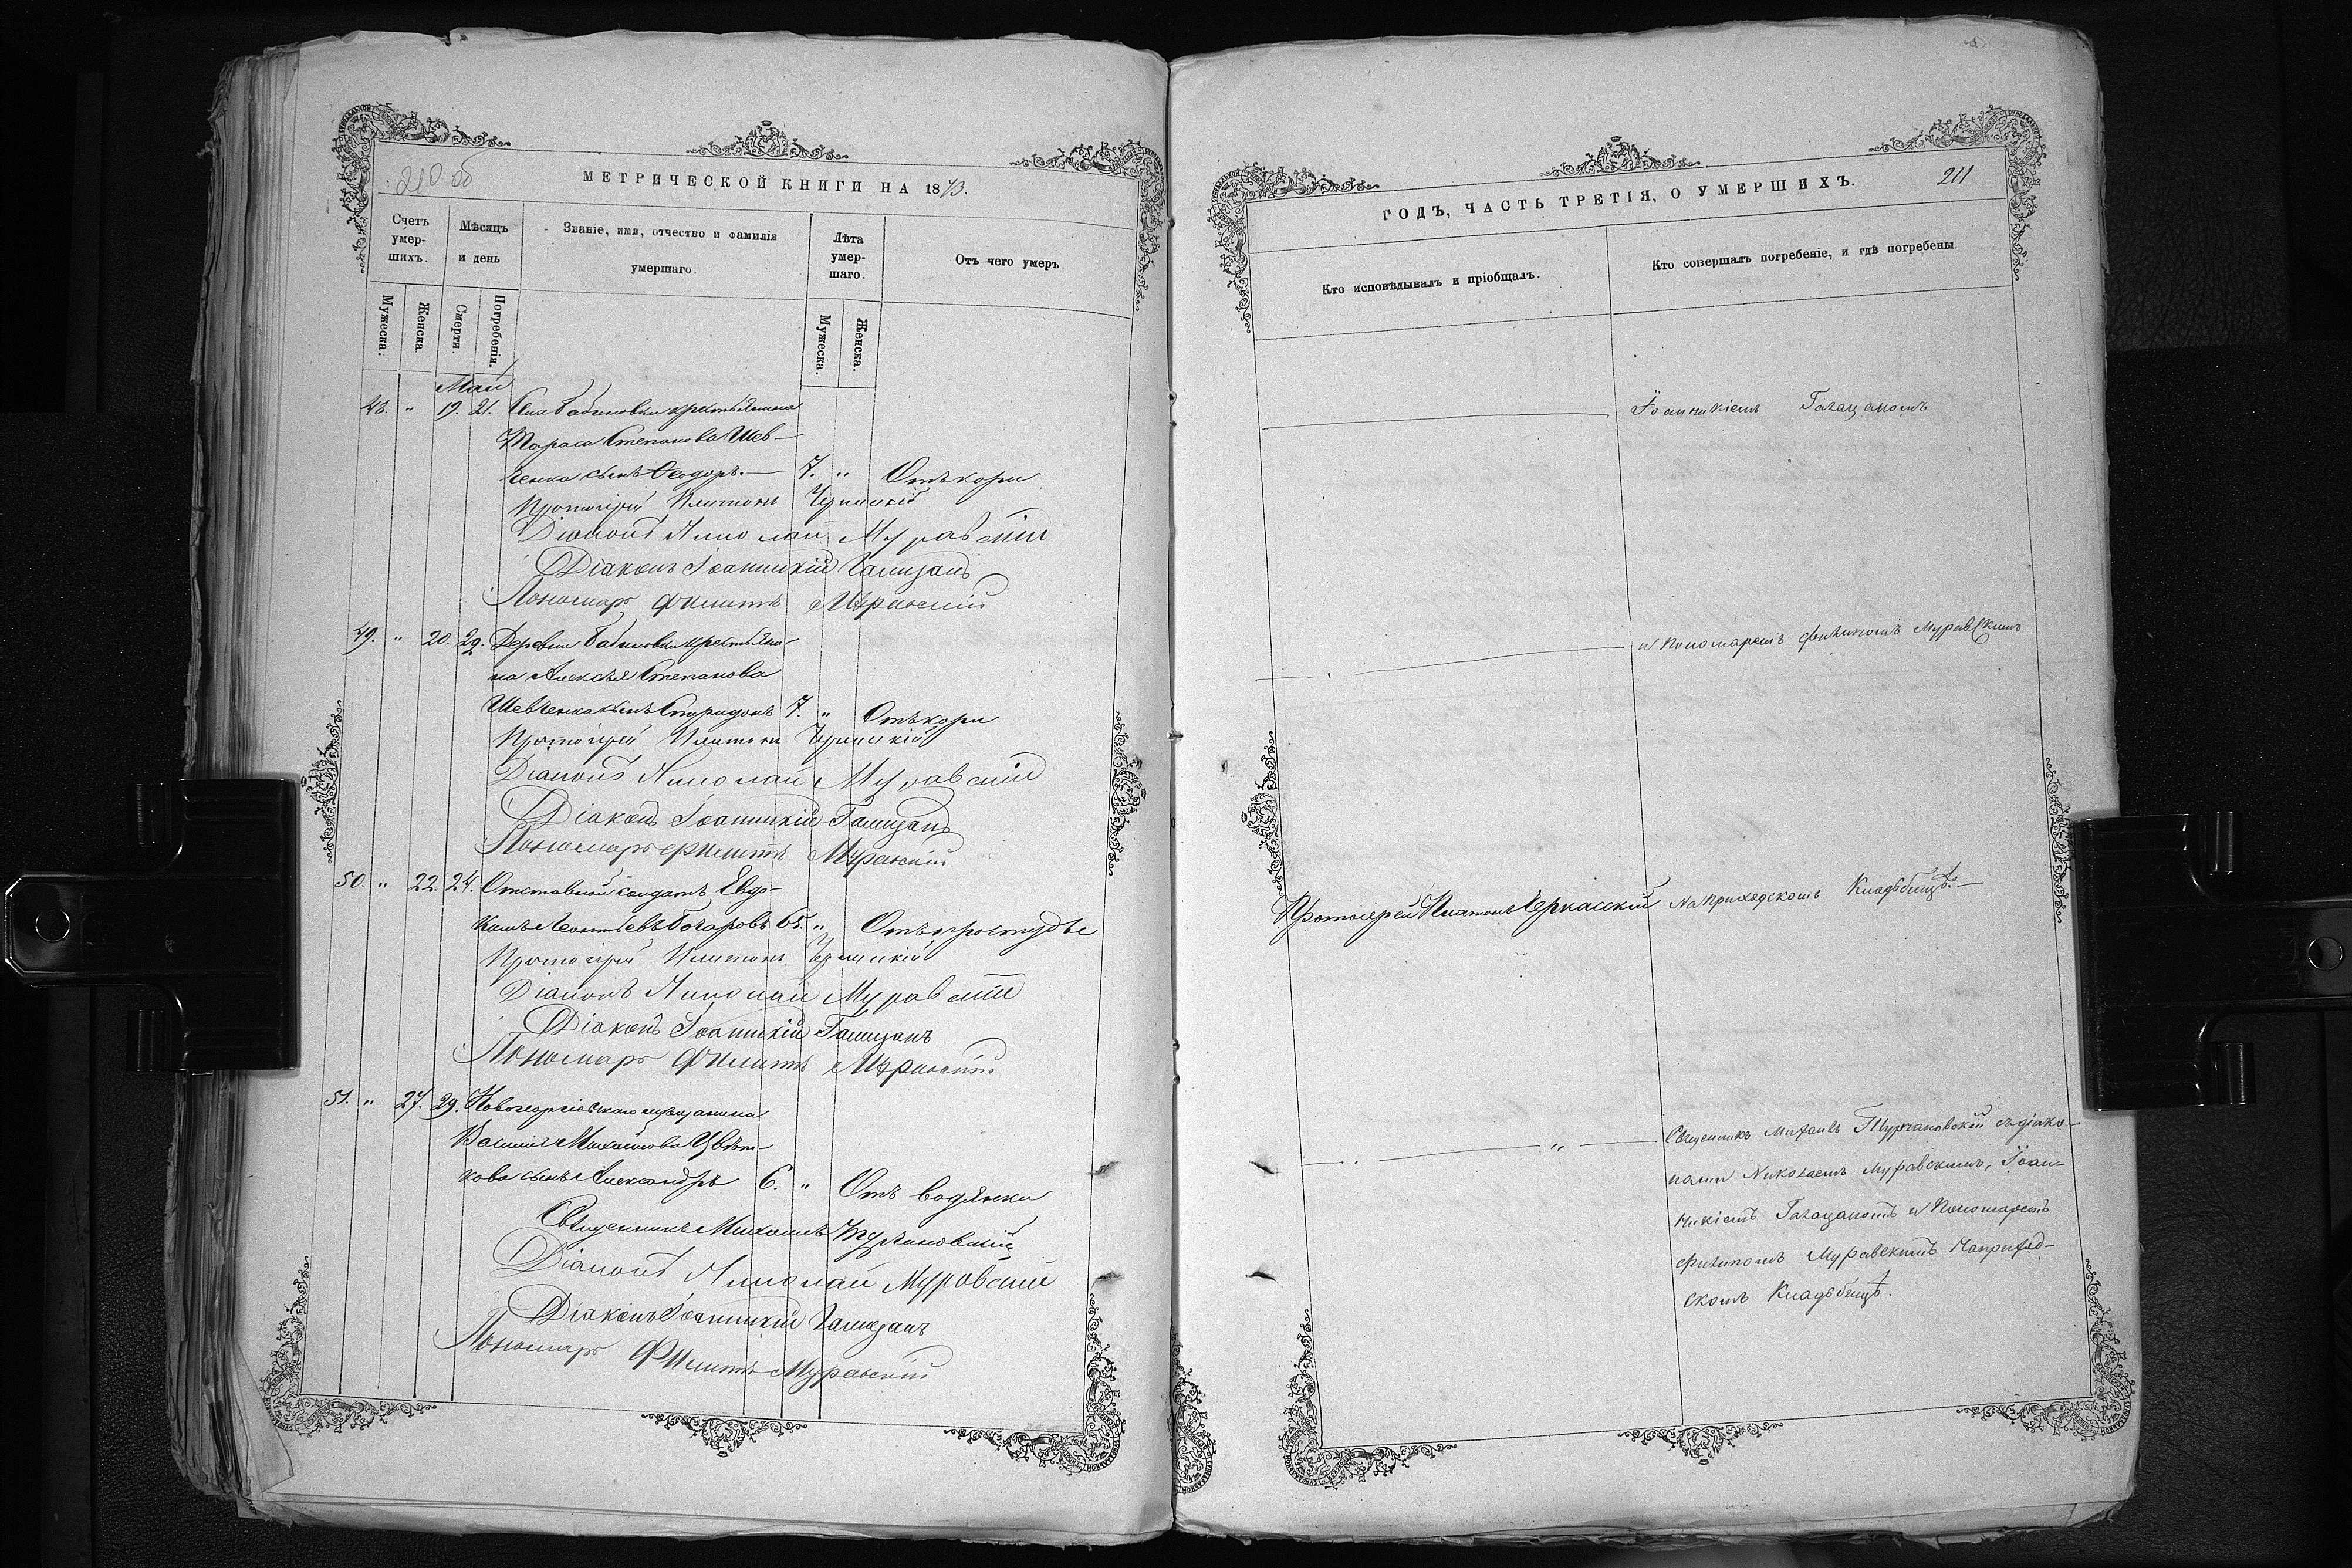 210 об
МЕТРИЧЕСКОЙ КНИГИ НА 1873.
Счетъ умер-шихъ.
Мѣсяцъ и день
Званіе, имя, отчество и фамилія умершаго.
Лѣта умер-шаго.
Отъ чего умеръ
Мужеска.
Женска.
Смерти.
Погребенія.
Мужеска.
Женска.
Май
48. " 19. 21. Бабиновки крестьянина
Тараса Степанова Шев-
ченка сынъ Ѳеодоръ. — 7. " Отъ кори
Протоіерей Платонъ Черкаскій
Діаконъ Николай Муравскій
Діаконъ Іоанникій Галицанъ
Пономарь Филиппъ Муравскій
49. " 20. 22. Деревни Бабиновки крестьяни-
на Алексѣя Степанова
Шевченка сынъ Спиридонъ 7. " Отъ кори
Протоіерей Платонъ Черкаскій
Діаконъ Николай Муравскій
Діаконъ Іоанникій Галицанъ
Пономарь Филиппъ Муравскій
50. " 22. 24. Отставной солдатъ Евдо-
кимъ Леонтьевъ Бочаровъ 65. " Отъ простуды
Протоіерей Платонъ Черкаскій
Діаконъ Николай Муравскій
Діаконъ Іоанникій Галицанъ
Пономарь Филиппъ Муравскій
51. " 27. 29. Новогеоргіевскаго мѣщанина
Василія Михайлова Цвѣт-
кова сынъ Александръ 6. " Отъ водянки
Священникъ Михаилъ
Діаконъ Николай Муравскій
Діаконъ Іоанникій Галицанъ
Пономарь Филиппъ Муравскій
ГОДЪ, ЧАСТЬ ТРЕТІЯ, О УМЕРШИХЪ.
211
Кто исповѣдывалъ и пріобщалъ.
Кто совершалъ погребеніе, и гдѣ погребены.
Іоанникіемъ Галицаномъ
и Пономаремъ Филипомъ Муравскимъ
Протоіерей Платонъ Черкаскій На приходскомъ Кладбищѣ. —
" Священникъ Михаилъ съ діако-
нами Николаемъ Муравскимъ, Іоан-
никіемъ Галицаномъ и Пономаремъ
Филипомъ Муравскимъ На приход-
скомъ Кладбищѣ.